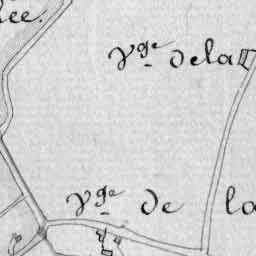 lee.
Vge de la
Vge de la